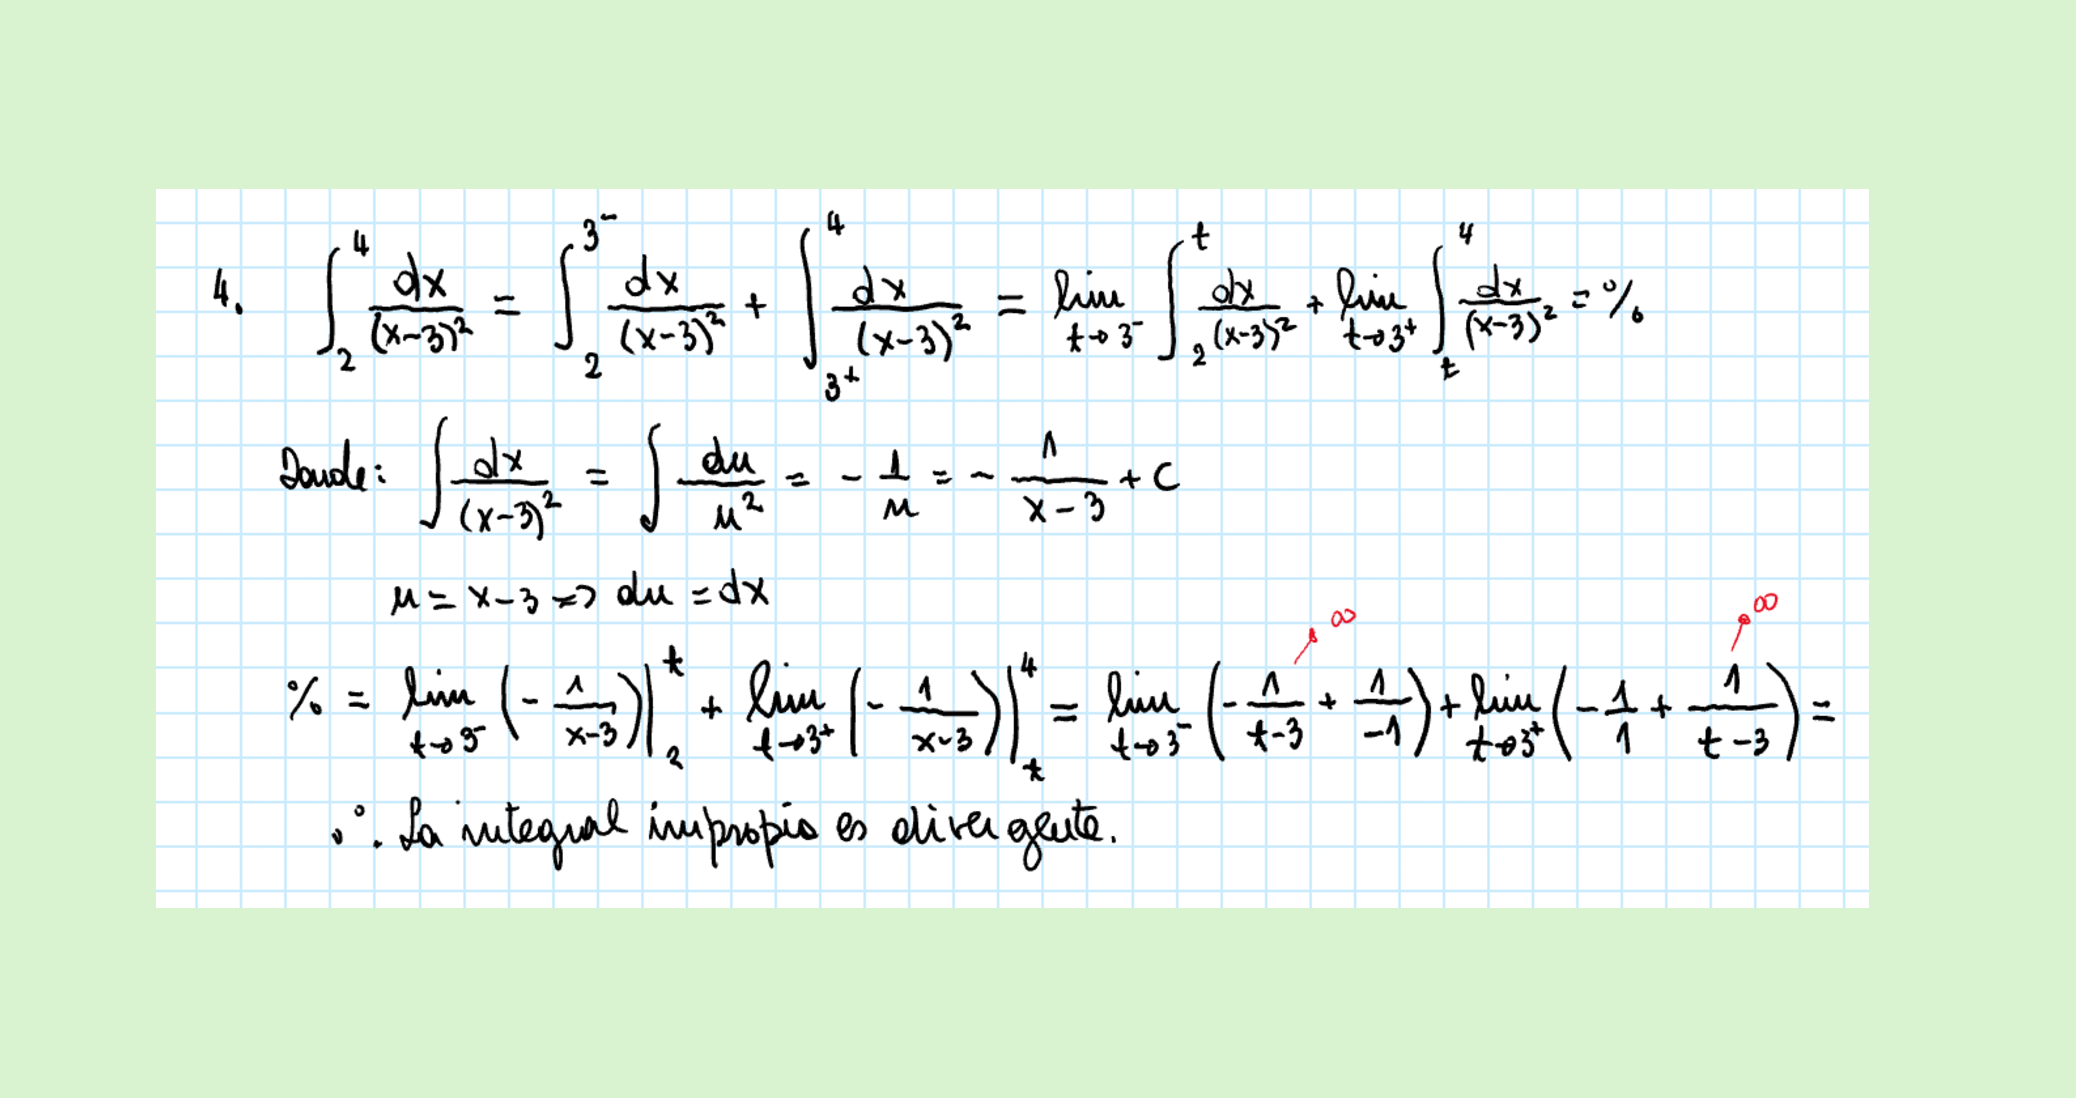 4. ∫₂⁴ dx/(x-3)² = ∫₂^{3⁻} dx/(x-3)² + ∫_{3⁺}⁴ dx/(x-3)² = lim_{t→3⁻} ∫₂^t dx/(x-3)² + lim_{t→3⁺} ∫_t⁴ dx/(x-3)² = %
Donde: ∫ dx/(x-3)² = ∫ du/u² = - 1/u = - 1/(x-3) + C
u = x-3 => du = dx
∞ ∞
% = lim_{t→3⁻} (- 1/(x-3))|₂^t + lim_{t→3⁺} (- 1/(x-3))|_t⁴ = lim_{t→3⁻} (- 1/(t-3) + 1/-1) + lim_{t→3⁺} (- 1/1 + 1/(t-3)) =
∴ La integral impropia es divergente.